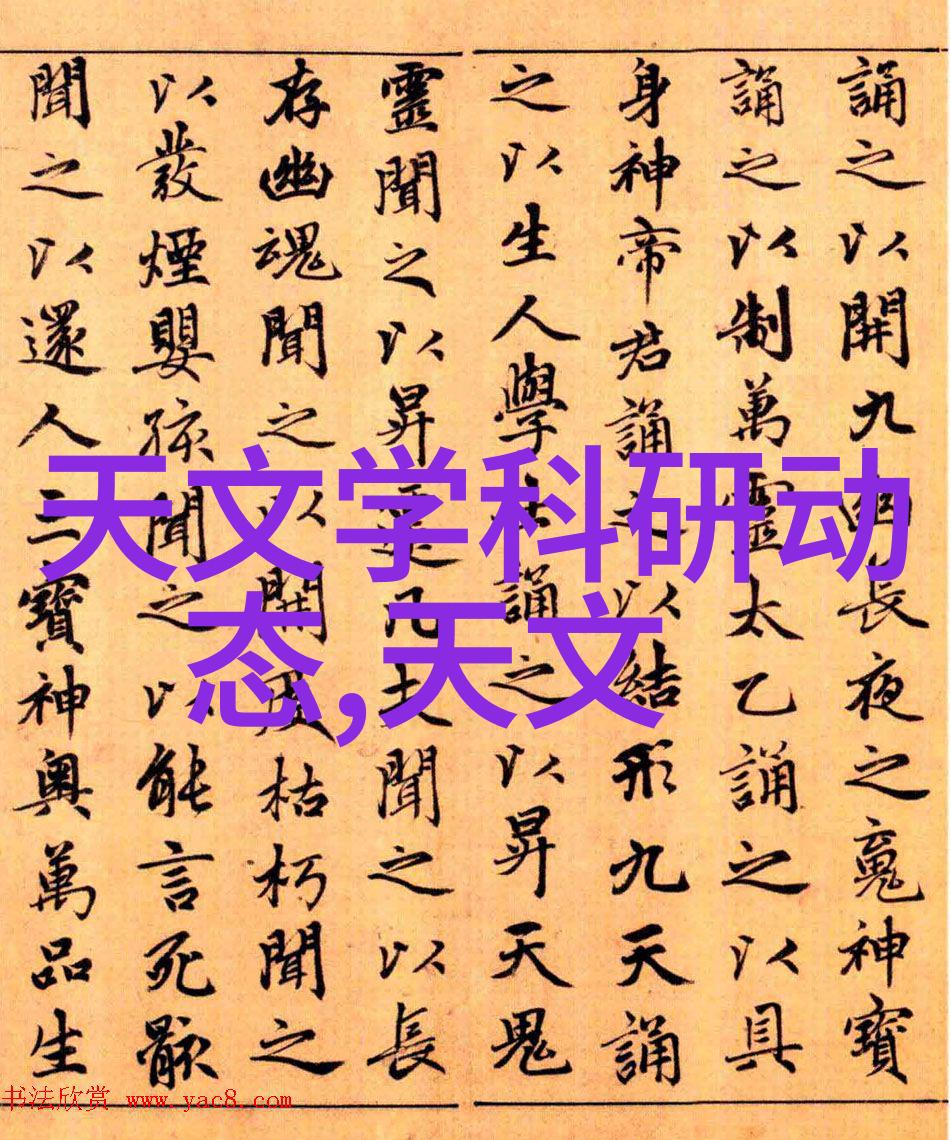 誦之以開九幽長夜之魂神寶
誦之以制萬靈太乙誦之以具
身神帝君誦之以結形九天誦
之以生人學士誦之以昇天鬼
靈聞之以昇遷凡夫聞之以長
存幽魂聞之以開度枯朽聞之
以發煙嬰孩聞之以能言死骸
聞之以還人三寶神奧萬品生
天文学科研动
态,天文
书法欣赏 www.yac8.com